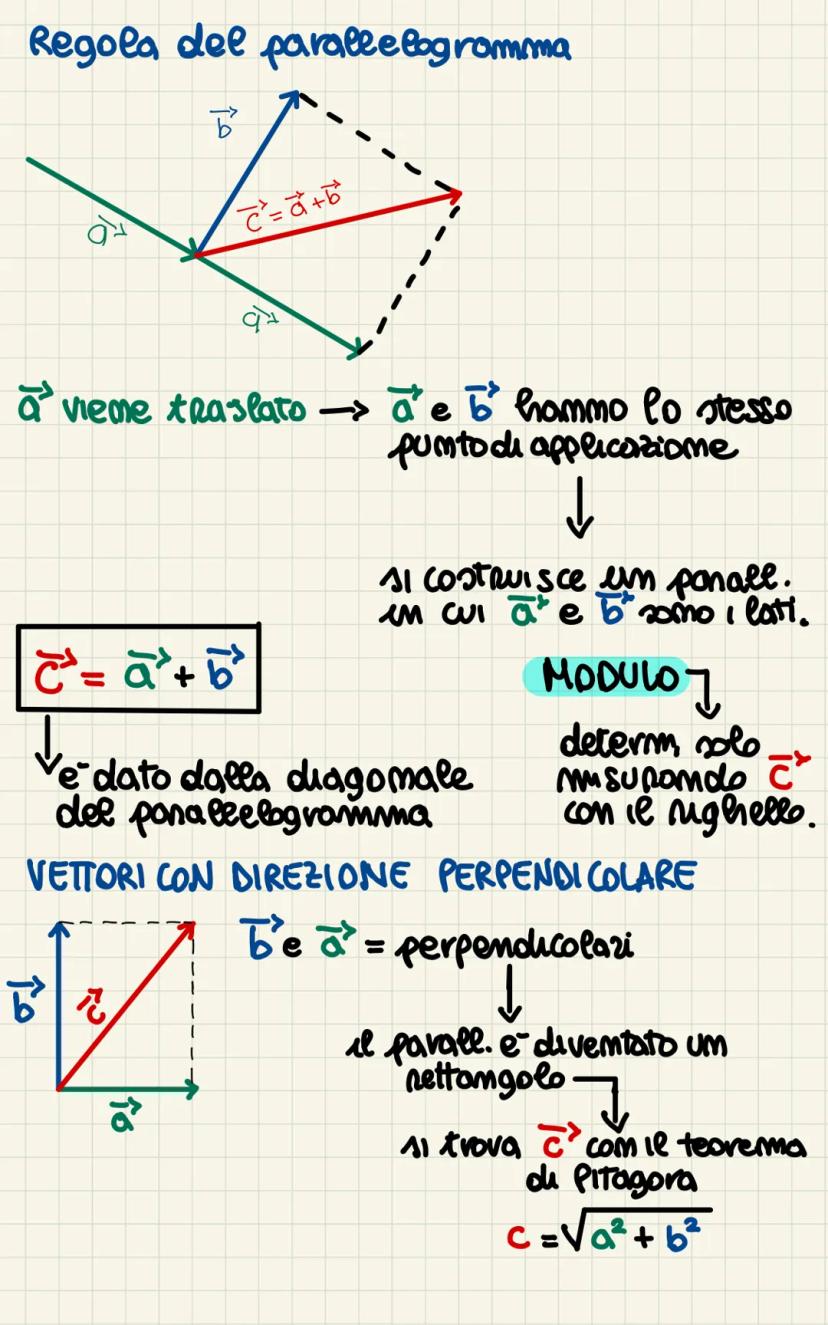 Regola del parallelogramma
b⃗
c⃗ = a⃗ + b⃗
a⃗
a⃗
a⃗ viene traslato → a⃗ e b⃗ hanno lo stesso
punto di applicazione
↓
si costruisce un parall.
in cui a⃗ e b⃗ sono i lati.
c⃗ = a⃗ + b⃗
↓
è dato dalla diagonale
del parallelogramma
MODULO
determ. solo
misurando c⃗
con il righello.
VETTORI CON DIREZIONE PERPENDICOLARE
b⃗
c⃗
a⃗
b⃗ e a⃗ = perpendicolari
↓
il parall. è diventato un
rettangolo
si trova c⃗ con il teorema
di Pitagora
c = √a² + b²